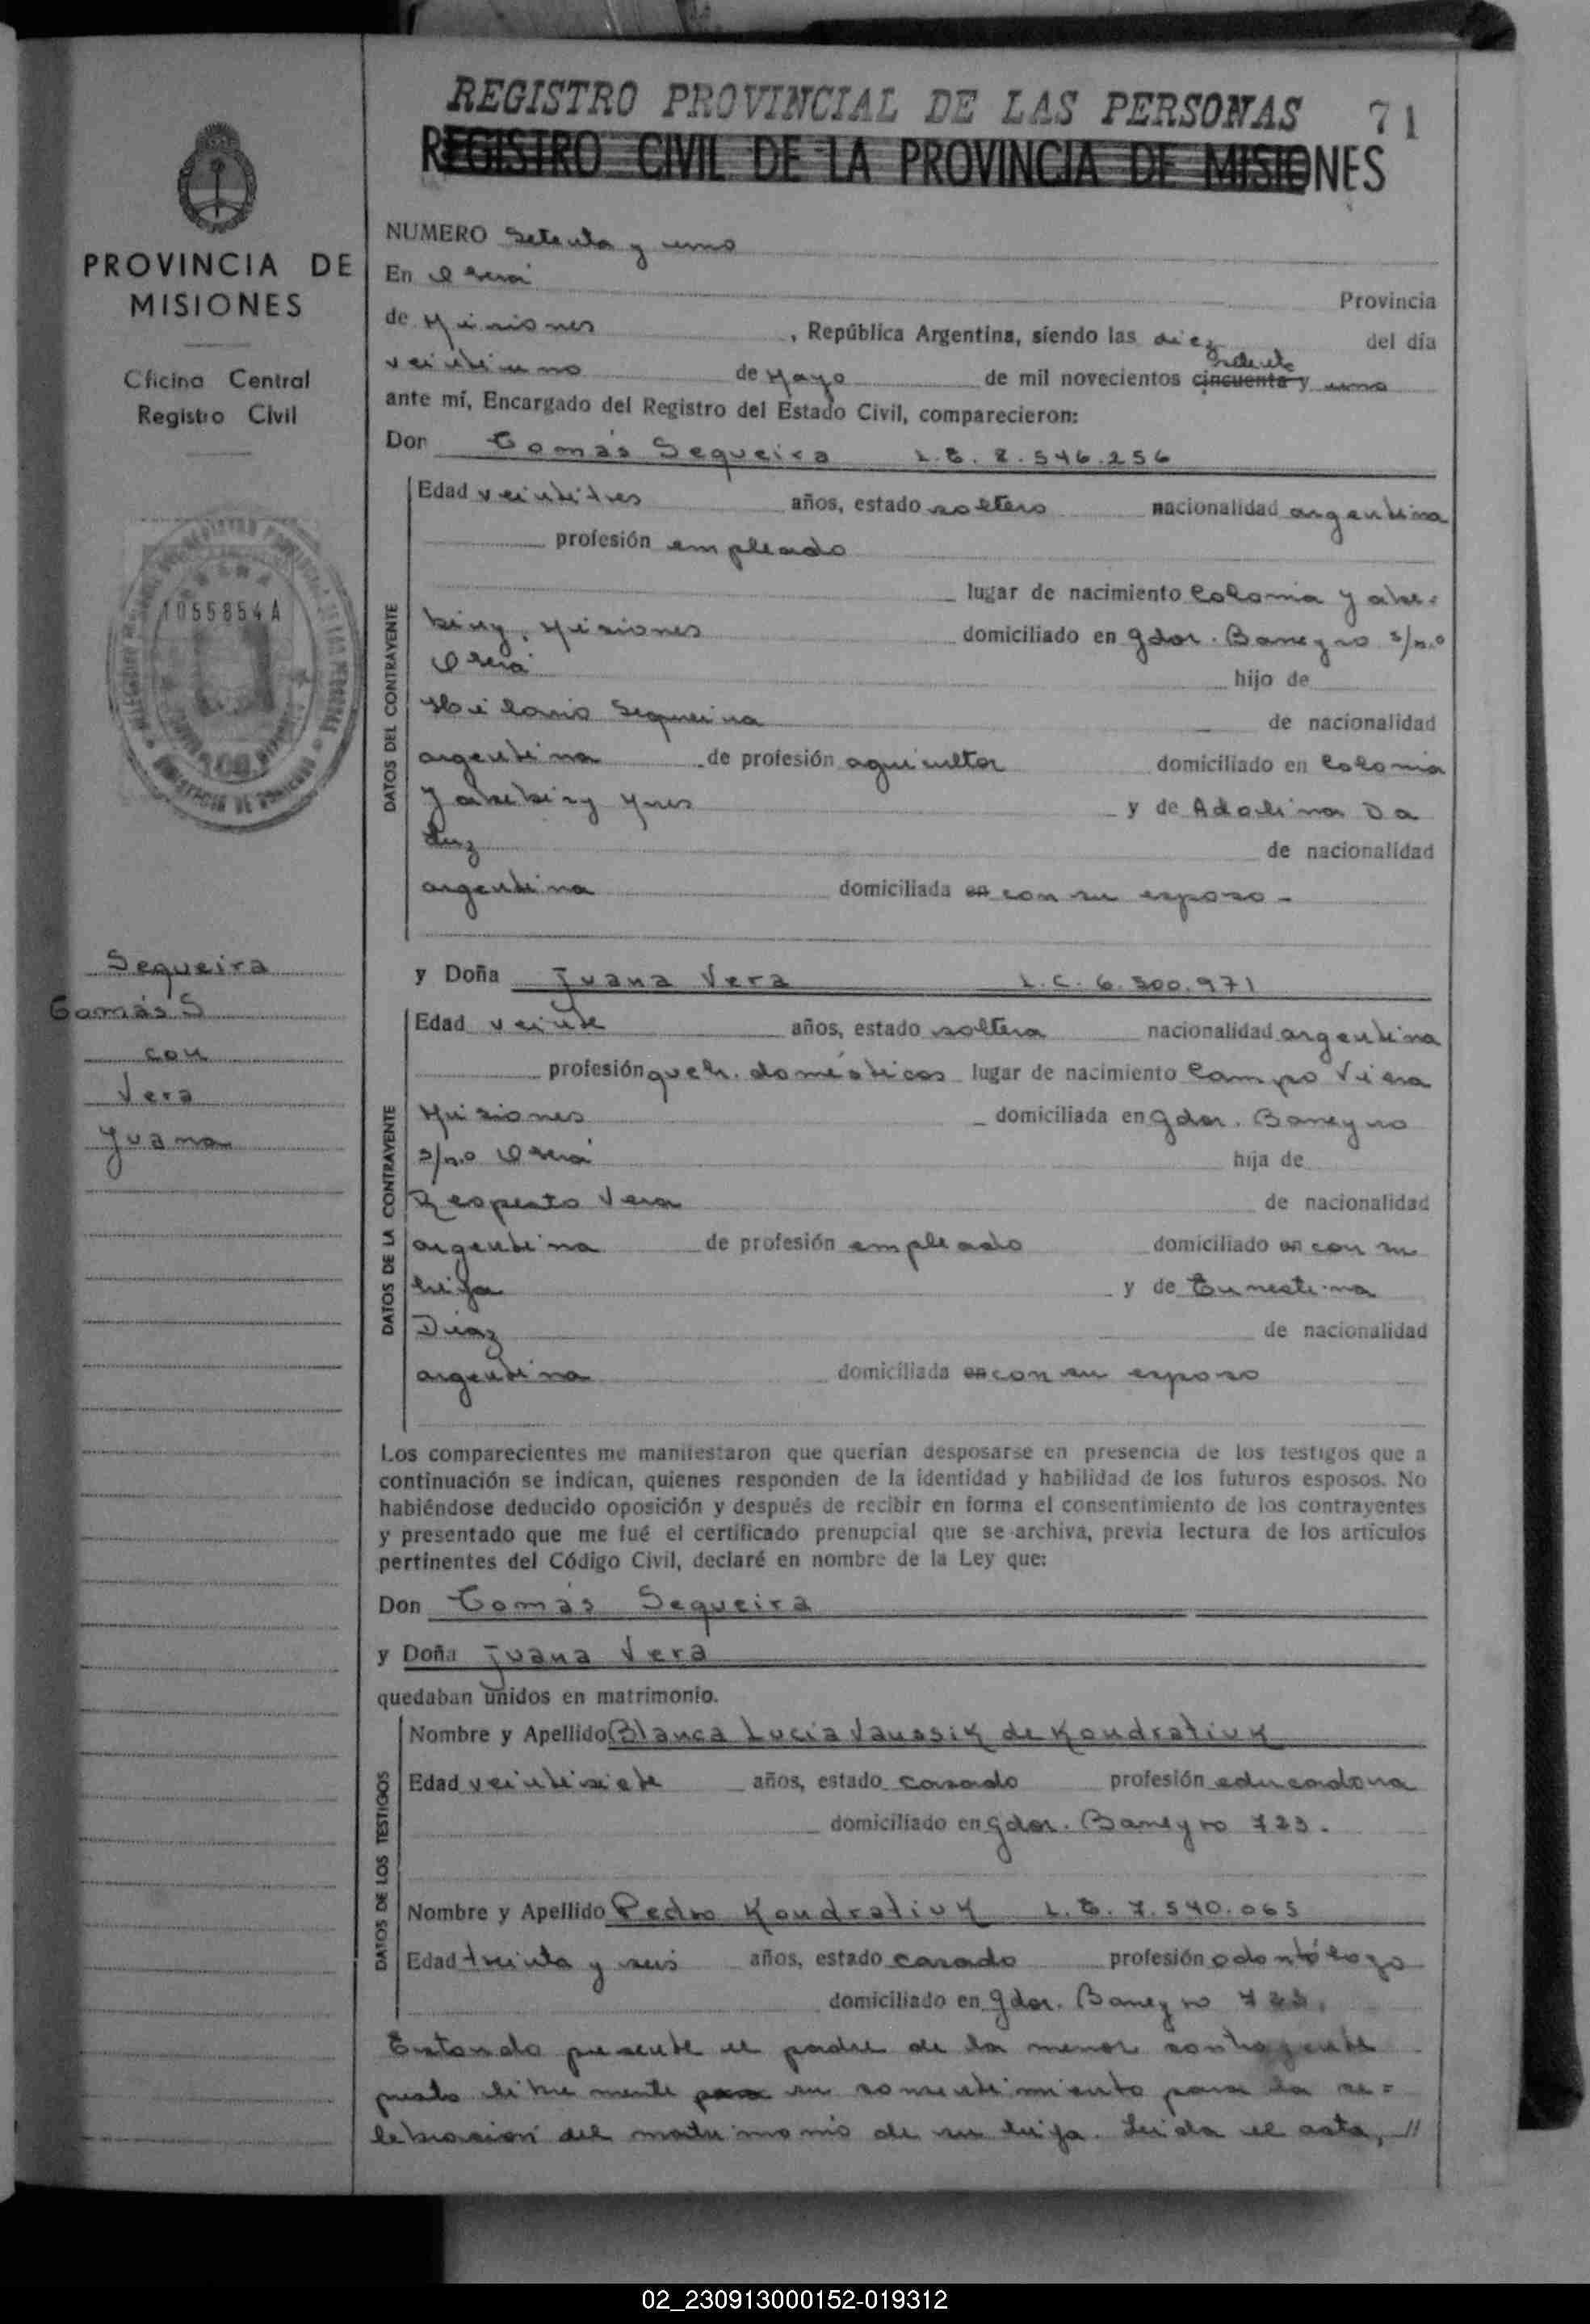 REGISTRO PROVINCIAL DE LAS PERSONAS 71
REGISTRO CIVIL DE LA PROVINCIA DE MISIONES
PROVINCIA DE
MISIONES
Oficina Central
Registro Civil
1055854A
Sequeira
Tomás S
con
Vera
Juana
NUMERO Setenta y uno
En Oberá Provincia
de Misiones, República Argentina, siendo las diez del día
veintiuno de Mayo de mil novecientos cincuenta setenta y uno
ante mí, Encargado del Registro del Estado Civil, comparecieron:
Don Tomás Sequeira L.E. 8.546.256
DATOS DEL CONTRAYENTE
Edad veintitres años, estado soltero nacionalidad argentina
profesión empleado
lugar de nacimiento Colonia Yabe=
biry, Misiones domiciliado en Gdor. Barreyro s/n.o
Oberá hijo de
Hilario Sequeira de nacionalidad
argentina de profesión agricultor domiciliado en Colonia
Yabebiry Mnes y de Adolina Da
Luz de nacionalidad
argentina domiciliada en con su esposo -
y Doña Juana Vera L.C. 6.300.971
DATOS DE LA CONTRAYENTE
Edad veinte años, estado soltera nacionalidad argentina
profesión queh. domésticos lugar de nacimiento Campo Viera
Misiones domiciliada en Gdor. Barreyro
s/n.o Oberá hija de
Respecto Vera de nacionalidad
argentina de profesión empleado domiciliado en con su
hija y de Ernestina
Diaz de nacionalidad
argentina domiciliada en con su esposo
Los comparecientes me manifestaron que querían desposarse en presencia de los testigos que a
continuación se indican, quienes responden de la identidad y habilidad de los futuros esposos. No
habiéndose deducido oposición y después de recibir en forma el consentimiento de los contrayentes
y presentado que me fué el certificado prenupcial que se archiva, previa lectura de los artículos
pertinentes del Código Civil, declaré en nombre de la Ley que:
Don Tomás Sequeira
y Doña Juana Vera
quedaban unidos en matrimonio.
DATOS DE LOS TESTIGOS
Nombre y Apellido Blanca Lucia Vaussik de Kondratiuk
Edad veintisiete años, estado casado profesión educadora
domiciliado en Gdor. Barreyro 723.
Nombre y Apellido Pedro Kondratiuk L.E. 7.540.065
Edad treinta y seis años, estado casado profesión odontólogo
domiciliado en Gdor. Barreyro 723.
Estando presente el padre de la menor contrayente
presta libremente para su consentimiento para la ce=
lebración del matrimonio de su hija. Leida el acta, //
02_230913000152-019312